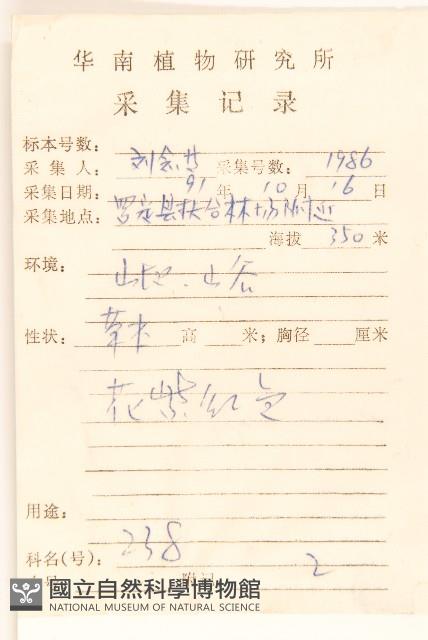 华南植物研究所
采集记录
标本号数：
采集人： 刘念 采集号数： 1986
采集日期： 91 年 10 月 16 日
采集地点： 罗定县扶合林场附近
海拔 350 米
环境： 山地．山谷
性状： 草本 高 米；胸径 厘米
花紫红色
用途：
科名(号)： 238
附记 2
國立自然科學博物館
NATIONAL MUSEUM OF NATURAL SCIENCE